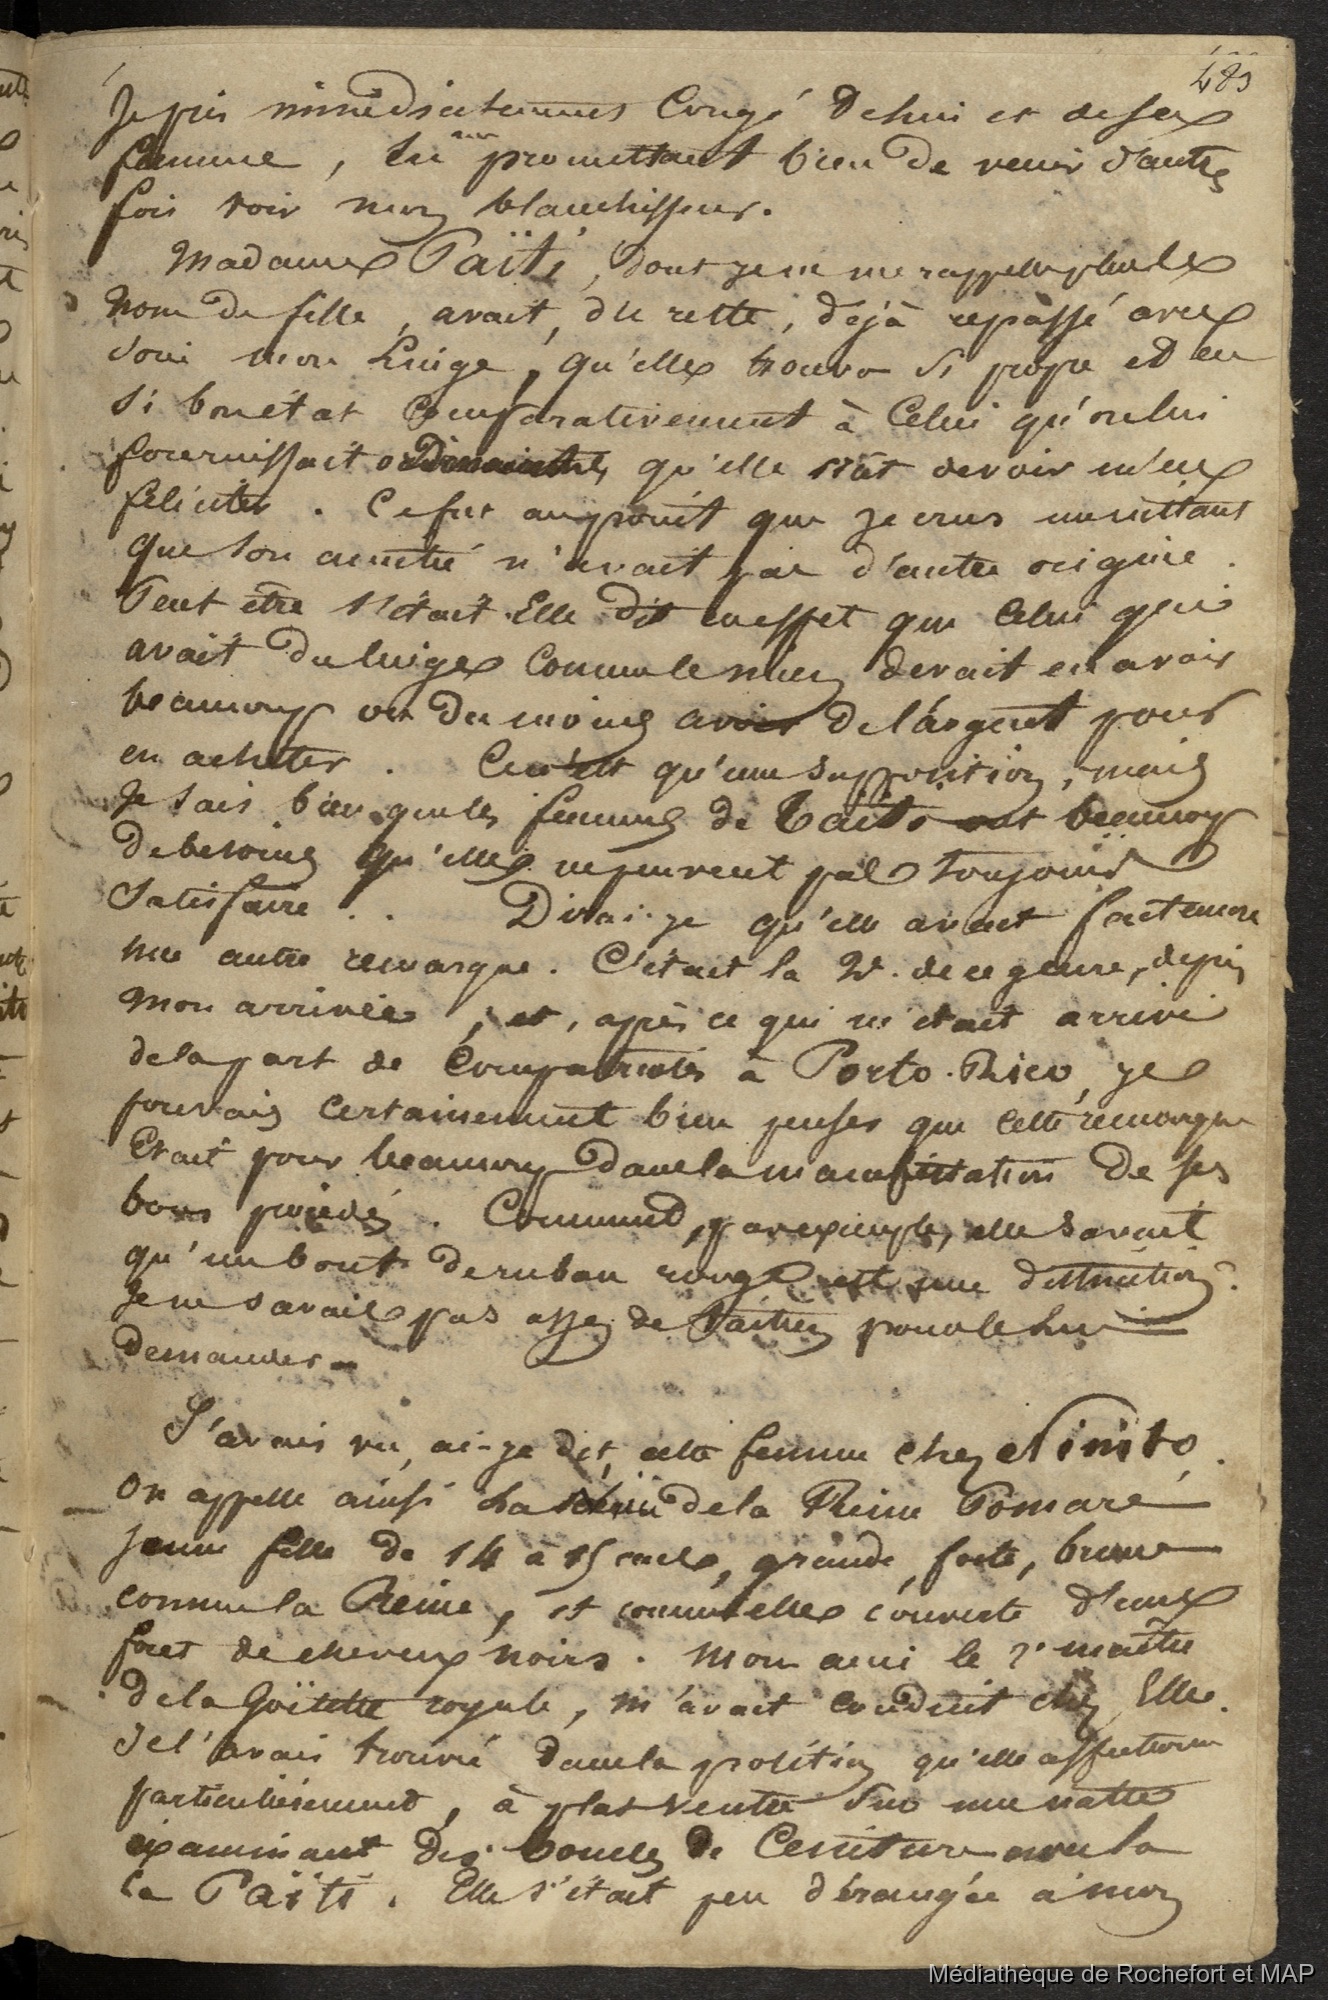 483
Je pris immédiatement Congé de lui et de sa
femme, lui promettant bien de venir d'autres
fois voir mon blanchisseur.
Madame Païti, dont je ne me rappelle plus le
nom de fille, avait, du reste, déjà repassé avec
soin mon linge, qu'elle trouva si propre et en
si bon état Comparativement à Celui qu'on lui
fournissait qu'elle crût devoir m'en
féliciter. Ce fut au point que je crus un instant
que son amitié n'avait pas d'autre origine.
Peut être s'était Elle dit en effet que Celui qui
avait du linge Comme le mien devait en avoir
beaucoup ou du moins avoir de l'argent pour
en acheter. Ce n'est qu'une supposition, mais
Je sais bien que les femmes de Taïti ont beaucoup
de besoins qu'elles ne peuvent pas toujours
Satisfaire.. Dirai-je qu'elle avait fait encore
une autre remarque. C'était la 2e. de ce genre, depuis
mon arrivée, et, après ce qui m'était arrivé
de la part de Compatriotes à Porto-Rico, je
pouvais certainement bien penser que cette remarque
Etait pour beaucoup dans la manifestation de ses
bons procédés. Comment, par exemple, elle savait
qu'un bout de ruban rouge est une distinction?
Je ne savais pas assez de Taïtien pour le lui
demander.
J'avais vu, ai-je dit, cette femme chez Ninito.
On appelle ainsi la de la Reine Pomaré
Jeune fille de 14 à 15 ans, grande, forte, brune
comme la Reine, et comme elle couverte d'une
foret de cheveux noirs. Mon ami le 2e maître
de la Goëlette royale, m'avait conduit chez Elle.
Je l'avais trouvé dans la position qu'elle affectionne
particulièrement, à plat ventre sur une natte
examinant des boucles de Ceinture avec la
la Païti. Elle s'était peu dérangée à mon
Médiathèque de Rochefort et MAP